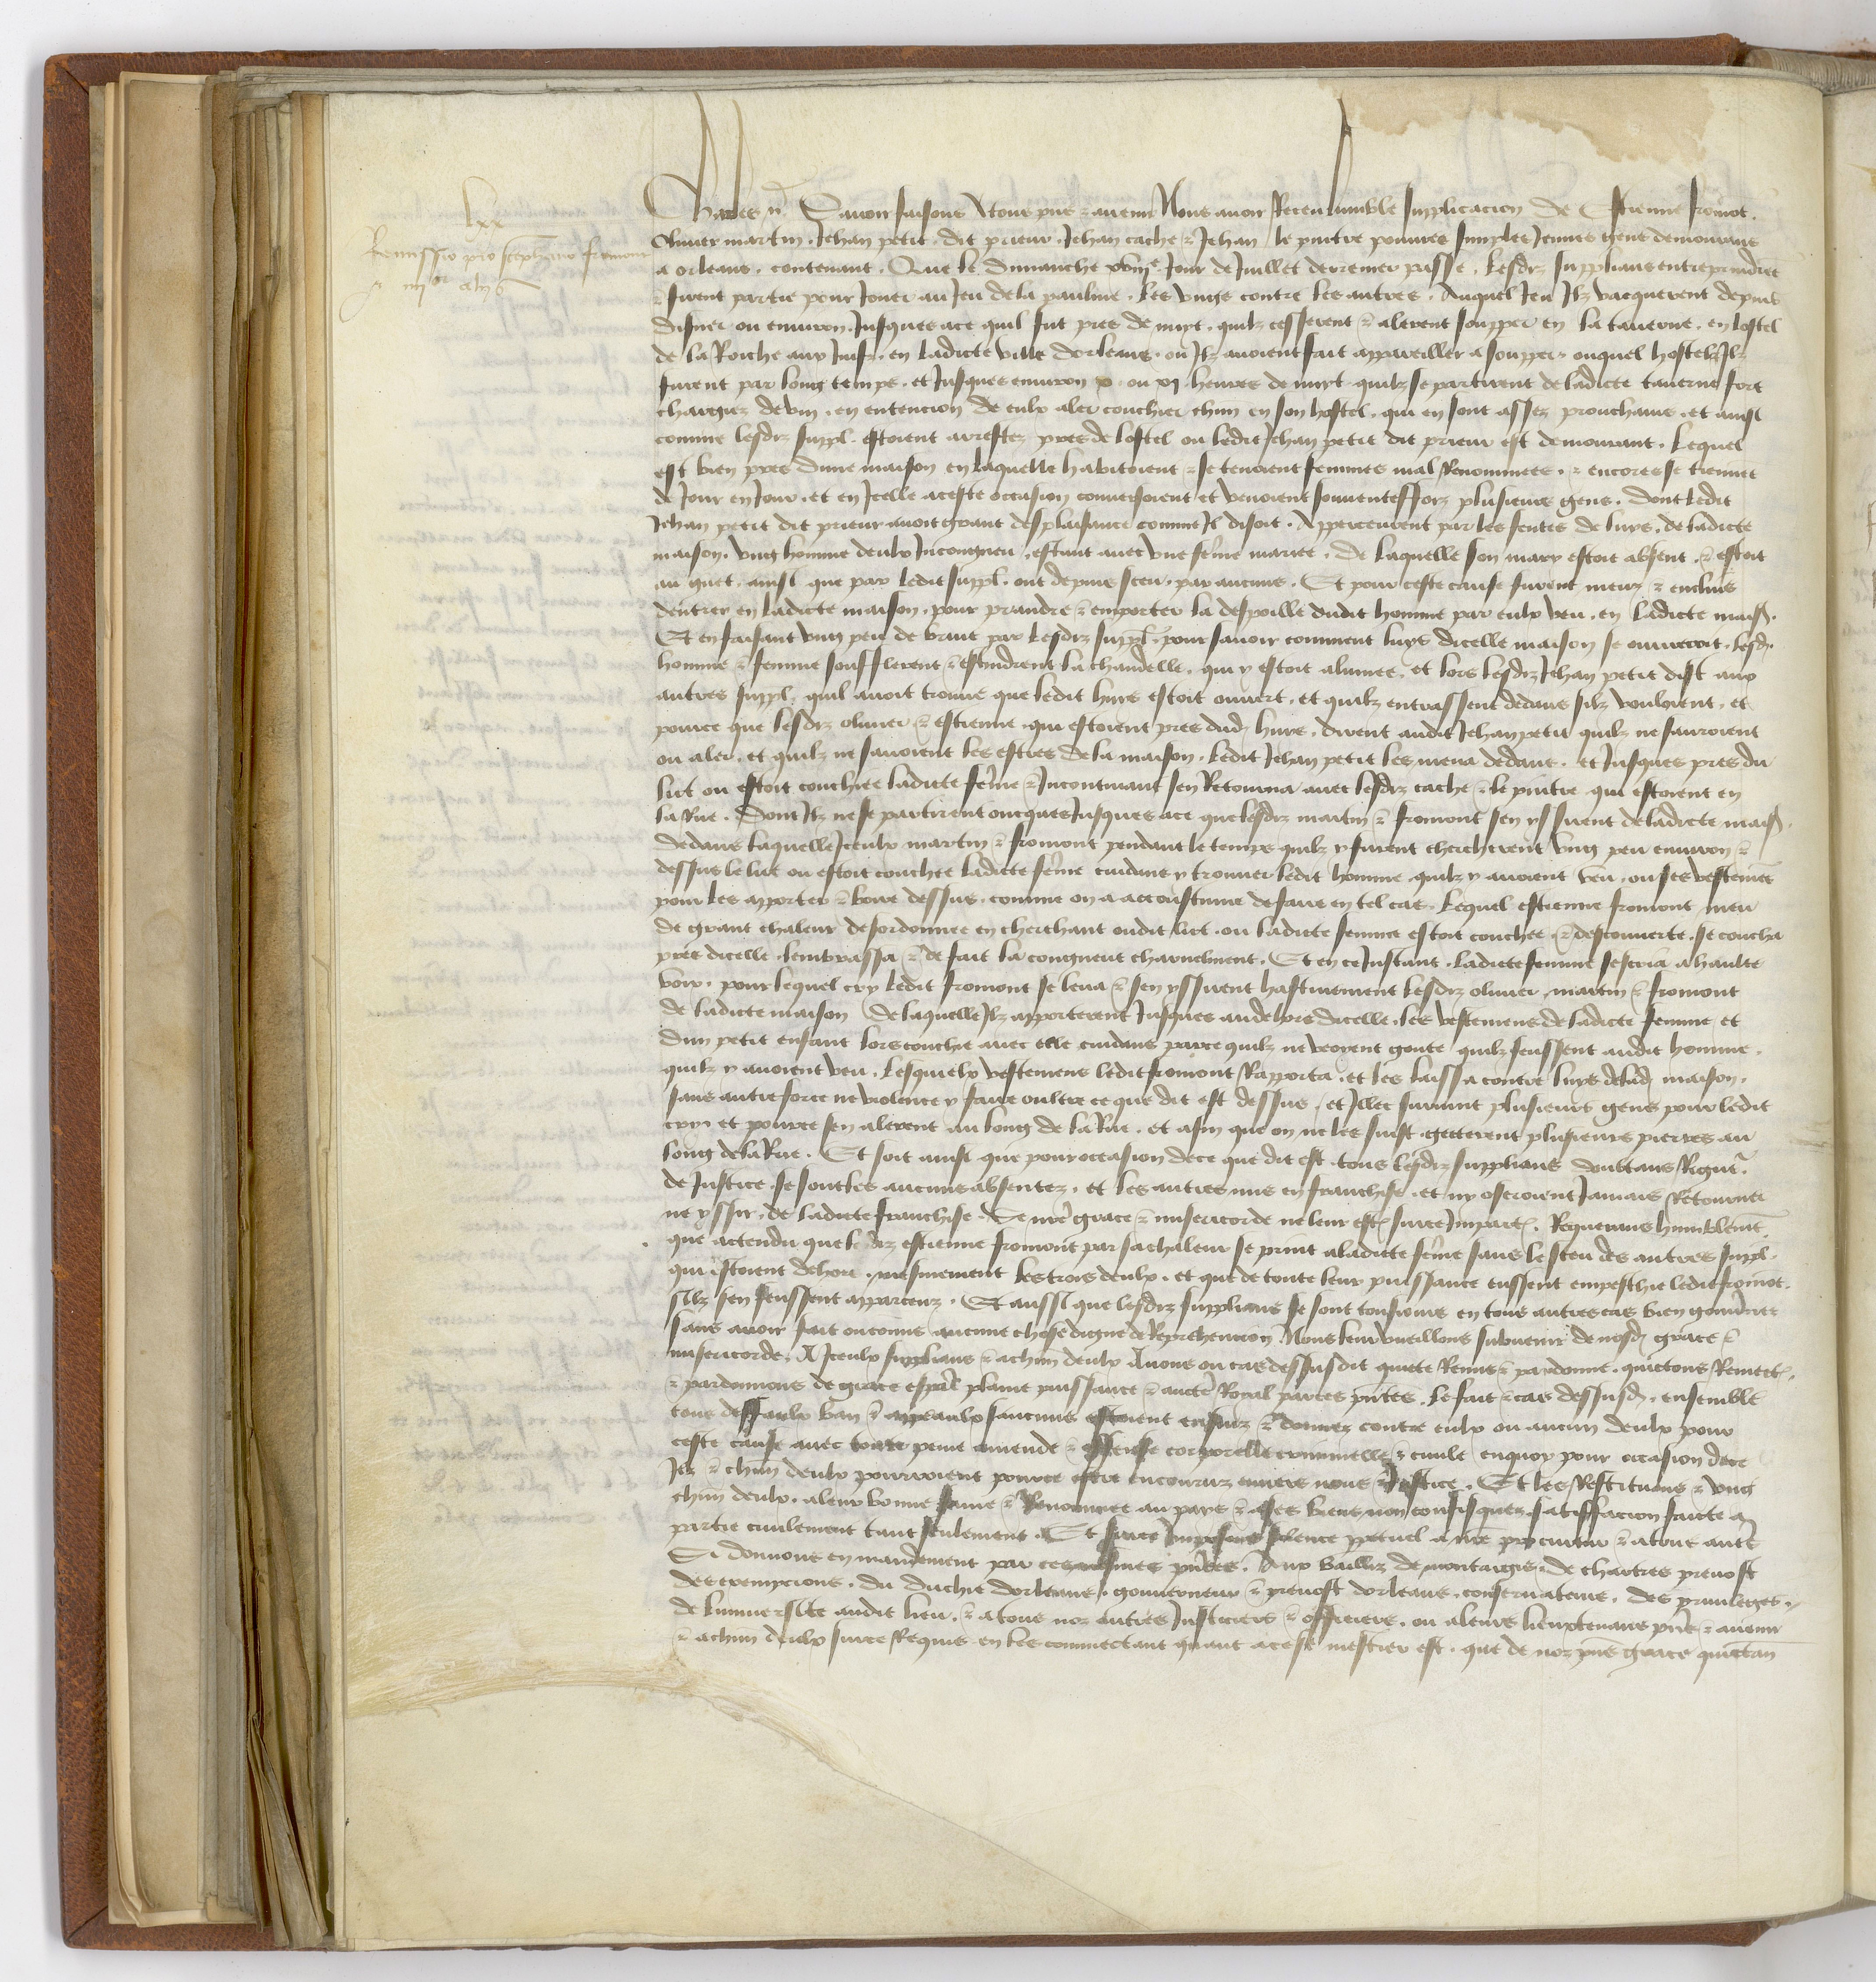 lxx
Remissio pro Stephano fremont
et iiijor aliis
Charles etc. Savoir faisons A tous pns et avenir Nous avoir Receu humble supplicacion de Estienne fromont.
Olivier martin. Jehan petit. dit prieur. Jehan cache et Jehan le peintre povures simples Jeunes gens demourans
a orleans. contenant. Que le dimanche xviije. Jour de Juillet derrenier passe. Lesdiz supplians entreprindrent
et firent partie pour Jouer au Jeu de la paulme. les ungs contre les autres. Auquel Jeu Ilz vacquerent depuis
disner ou environ. Jusques ace quil fut pres de nuyt. quilz cesserent et alerent soupper en la taverne. en lostel
de la Roiche aux Juifz. en ladicte ville dorleans. ou Ilz avoient fait appareiller a soupper. ouquel hostel Ilz
furent par long temps. et Jusques environ x. ou xj. heures de nuyt quilz se partirent de ladicte taverne fort
chargez de vin. en entencion de eulx aler couchier chun en son hostel. qui en sont assez prouchains. et ainsi
comme lesdiz suppl. estoient arrestez pres de lostel ou ledit Jehan petit dit prieur est demourant. Lequel
est bien pres dune maison en laquelle habitoient et se tenoient femmes mal Renommees. et encores se tiennent
de Jour en Jour. et en Icelle aceste occasion conversoient et venoient souventesfoiz plusieurs gens. dont ledit
Jehan petit dit prieur avoit grant desplaisance comme Il disoit. Apperceurent par les fentes de luys. de ladicte
maison. ung homme deulx Incongneu. estant avec une feme mariee. de laquelle son mary estoit absent. et estoit
au guet. ainsi que par ledit suppl. ont depuis sceu. par aucuns. Et pour ceste cause furent meuz. et enclins
dentrer en ladicte maison. pour prandre et emporter la despoille dudit homme par eulx veu. en ladicte mais.
Et en faisant ung peu de bruit par lesdiz suppl. pour savoir comment luys dicelle maison se ouvreroit. lesd.
homme et femme soufflerent et estaindrent la chandelle. qui y estoit alumee. et lors lesdiz Jehan petit dist aux
autres suppl. quil avoit trouve que ledit huys estoit ouvert. et quilz entrassent dedans silz vouloient. et
pource que lesdiz olivier et estienne. qui estoient pres dud. huys. dirent audit Jehan petit quilz ne sauroient
ou aler. et quilz ne savoient les estres de la maison. Ledit Jehan petit les mena dedans. et Jusques pres du
lict ou estoit couchiee ladicte feme et Incontinant sen Retourna avec lesdiz cache et le peintre qui estoient en
la Rue. dont Ilz ne se partirent oncques Jusques ace que lesdiz martin et fromont sen yssirent de ladicte mais.
dedans laquelle Iceulx martin et fromont pendant le temps quilz y furent chercherent ung peu environ et
dessus le lict ou estoit couchee ladicte feme cuidans y trouver ledit homme quilz y avoient veu. ou ses vestemens
pour les apporter et boire dessus. comme on a acoustume de faire en tel cas. Lequel estienne fromont meu
de grant chaleur desordonnee en cherchant oudit lict. ou ladicte femme estoit couchee. et descouverte. se coucha
pres dicelle. lembrassa et de fait la congneut charnelment. Et en ce Instant. ladicte femme sescria a haulte
voix. pour lequel cry ledit fromont se leva et sen yssirent hastivement lesdiz olivier martin et fromont
de ladicte maison de laquelle Ilz apporterent Jusques au dehors dicelle. les vestemens de ladicte femme et
dun petit enfant lors couchie avec elle cuidans parce quilz ne veoyent goute quilz feussent audit homme.
quilz y avoient veu. Lesquielx vestemens ledit fromont Rapporta. et les laissa contre luys de lad. maison.
sans autre force ne violence y faire oultre ce que dit est dessus. et Illec survint plusieurs gens pour ledit
cry. et pource sen alerent au long de la Rue. et afin que on ne les suist getterent plusieurs pierres au
long de la Rue. Et soit ainsi que pour occasion de ce que dit est. tous lesdiz supplians doubtans Rigur.
de Justice. se sont les aucuns absentez. et les autres mis en franchise. et ny oseroient Jamais Retourner
ne yssir. de ladicte franchise. Se nre grace et misericorde ne leur est sur ce Impart. Requerans humblemt.
que actendu que lesdiz estienne fromont par sa chaleur se print a ladicte feme sans le sceu des autres suppl.
qui estoient dehors. mesmement les trois deulx. et que de toute leur puissance eussent empeschie ledit fromont.
silz sen feussent apparceuz. Et aussi que lesdiz supplians se sont tousiours en tous autres cas bien gouvernez
sans avoir fait ou commis aucune chose digne de Reprehencion Nous leur vueillons subvenir de nosd. grace et
misericorde. A Iceulx supplians et achun deulx Avons ou cas dessusdit quicte Remis et pardonne. quictons Remett.
et pardonnons de grace espal plaine puissance et aucte Royal parces pntes. le fait et cas dessusd. ensemble
tous deffaulx ban et appeaulx saucuns estoient ensuiz et donnez contre eulx ou aucun deulx pour
ceste cause avec toute peine amende et offense corporelle criminelle et civile enquoy pour occasion dece
Ilz et chun deulx pourroient pource estre encouruz envers nous et Justice. Et les Restituons et ung
chun deulx. aleur bonne fame et Renommee au pays et ases biens non confisquez. satiffacion faicte a
partie civilement tant seulement. Et surce Imposons silence ppetuel a nre procureur et atous autr
Si donnons en mandement par ces mesmes pntes. Aux bailliz de montargis. de chartres prevost
des exempcions. du duchie dorleans. gouverneur et prevost dorleans. conservateurs. des privileges.
de luniversite audit lieu. et atous noz autres Justiciers et officiers. ou aleurs lieuxtenans pns et avenir
et achun deulx surce Requis en les commectant quant ace se mestier est. que de noz pns grace quictan